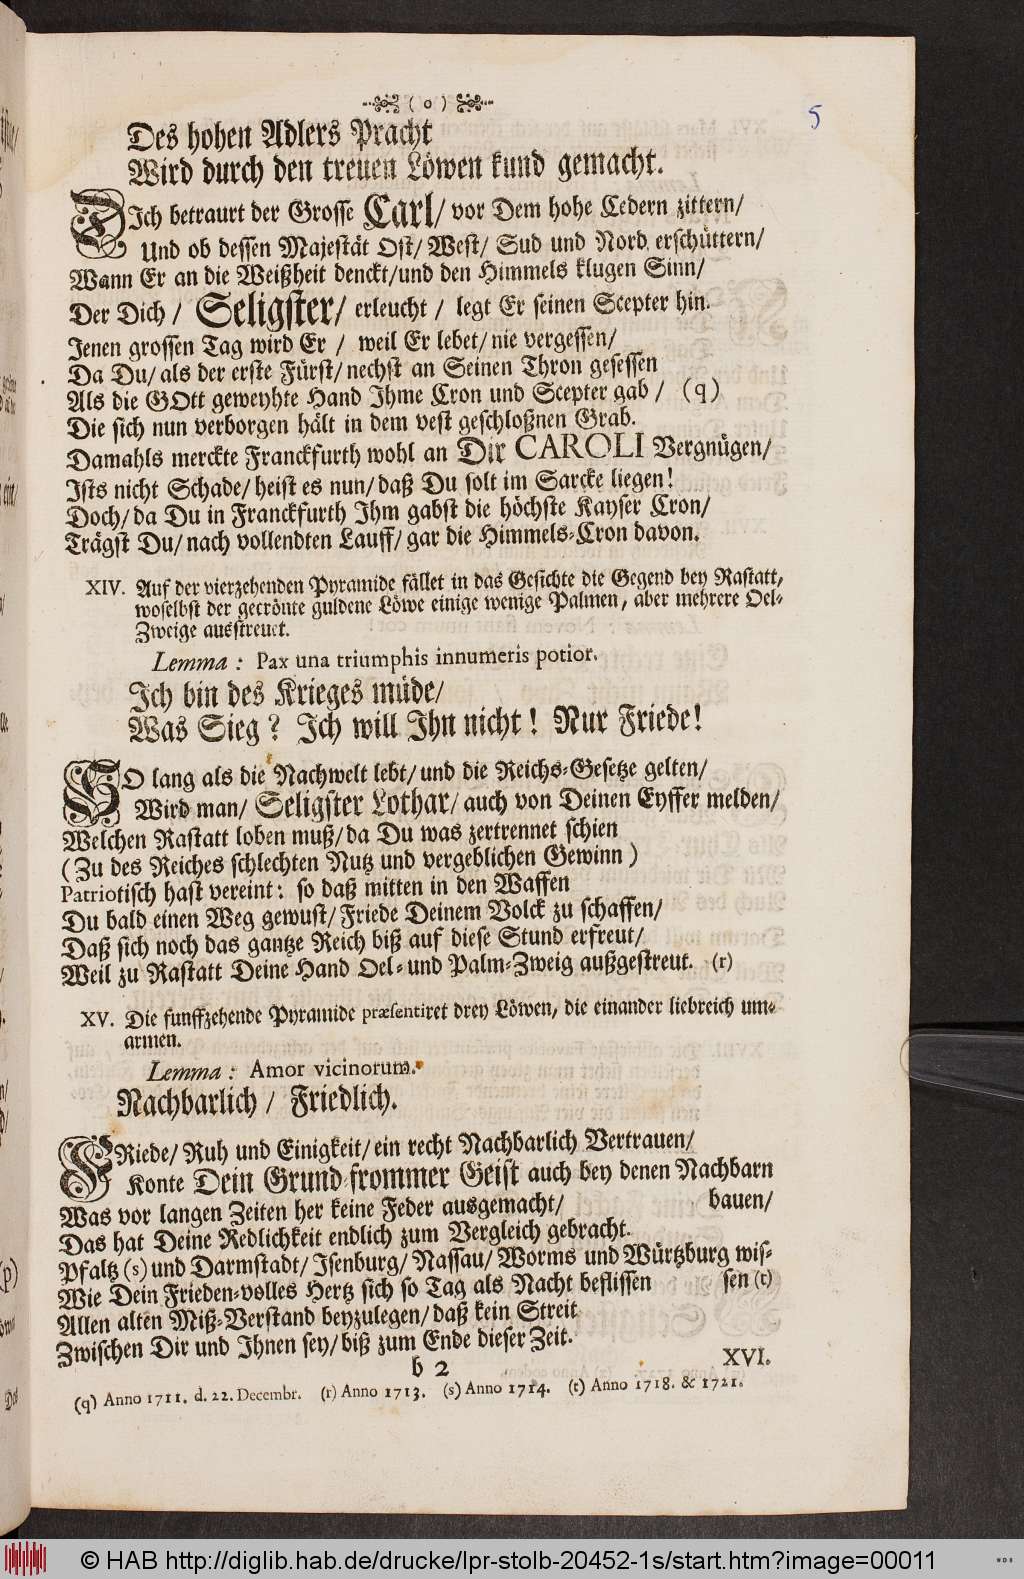 ( o )
5
Des hohen Adlers Pracht
Wird durch den treuen Löwen kund gemacht.
DIch betraurt der Grosse Carl/ vor Dem hohe Cedern zittern/
Und ob dessen Majestät Ost/ West/ Sud und Nord erschüttern/
Wann Er an die Weißheit denckt/und den Himmels klugen Sinn/
Der Dich / Seligster/ erleucht / legt Er seinen Scepter hin.
Jenen grossen Tag wird Er / weil Er lebet/ nie vergessen/
Da Du/ als der erste Fürst/ nechst an Seinen Thron gesessen
Als die GOtt geweyhte Hand Ihme Cron und Scepter gab / (q)
Die sich nun verborgen hält in dem vest geschloßnen Grab.
Damahls merckte Franckfurth wohl an Dir CAROLI Vergnügen/
Ists nicht Schade/ heist es nun/ daß Du solt im Sarcke liegen!
Doch/ da Du in Franckfurth Ihm gabst die höchste Kayser Cron/
Trägst Du/ nach vollendten Lauff/ gar die Himmels-Cron davon.
XIV. Auf der vierzehenden Pyramide fället in das Gesichte die Gegend bey Rastatt,
woselbst der gecrönte guldene Löwe einige wenige Palmen, aber mehrere Oel-
Zweige ausstreuet.
Lemma : Pax una triumphis innumeris potior.
Ich bin des Krieges müde/
Was Sieg ? Ich will Ihn nicht ! Nur Friede!
SO lang als die Nachwelt lebt/ und die Reichs-Gesetze gelten/
Wird man/ Seligster Lothar/ auch von Deinen Eyffer melden/
Welchen Rastatt loben muß/ da Du was zertrennet schien
( Zu des Reiches schlechten Nutz und vergeblichen Gewinn )
Patriotisch hast vereint: so daß mitten in den Waffen
Du bald einen Weg gewust/ Friede Deinem Volck zu schaffen/
Daß sich noch das gantze Reich biß auf diese Stund erfreut/
Weil zu Rastatt Deine Hand Oel- und Palm-Zweig außgestreut. (r)
XV. Die funffzehende Pyramide præsentiret drey Löwen, die einander liebreich um-
armen.
Lemma : Amor vicinorum.
Nachbarlich / Friedlich.
FRiede/ Ruh und Einigkeit/ ein recht Nachbarlich Vertrauen/
Konte Dein Grund-frommer Geist auch bey denen Nachbarn
bauen/
Was vor langen Zeiten her keine Feder ausgemacht/
Das hat Deine Redlichkeit endlich zum Vergleich gebracht.
Pfaltz (s) und Darmstadt/ Isenburg/ Nassau/ Worms und Würtzburg wis-
sen (t)
Wie Dein Frieden-volles Hertz sich so Tag als Nacht beflissen
Allen alten Miß-Verstand beyzulegen/ daß kein Streit
Zwischen Dir und Ihnen sey/ biß zum Ende dieser Zeit.
b 2
XVI.
(q) Anno 1711. d. 22. Decembr. (r) Anno 1713. (s) Anno 1714. (t) Anno 1718. & 1721.
© HAB http://diglib.hab.de/drucke/lpr-stolb-20452-1s/start.htm?image=00011